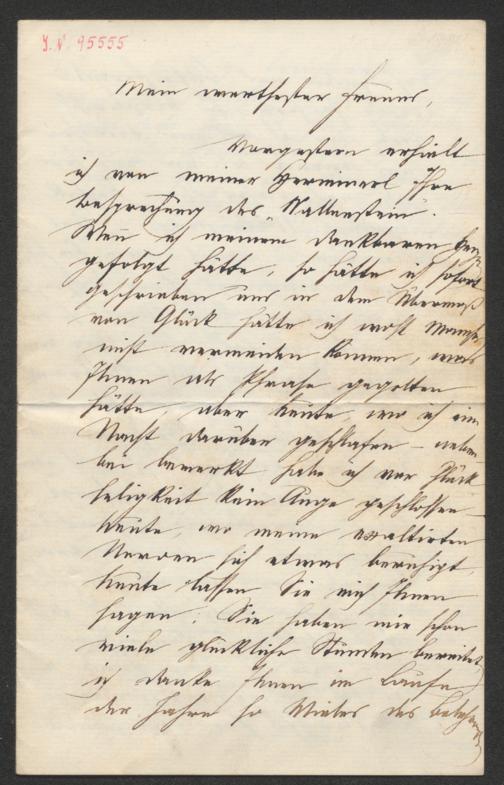 J. N. 95555
Mein werthester Freund,
Vorgestern erhielt
ich von meiner Herminerl Ihre
Besprechung des "Wallenstein".
Wenn ich meinem dankbaren
gefolgt hätte, so hätte ich sofort
geschrieben und in dem Übermaß
von Glück hätte ich wohl Manches
nicht vermeiden können, was
Ihnen als Phrase gegolten
hätte, aber heute, wo ich eine
Nacht darüber geschlafen – neben
bei bemerkt habe ich vor Glück
seligkeit kein Auge geschlossen –
heute, wo meine exaltirten
Nerven sich etwas beruhigt,
heute lassen Sie mich Ihnen
sagen: Sie haben mir schon
viele glückliche Stunden bereitet,
ich danke Ihnen im Laufe
der Jahre so Vieles des